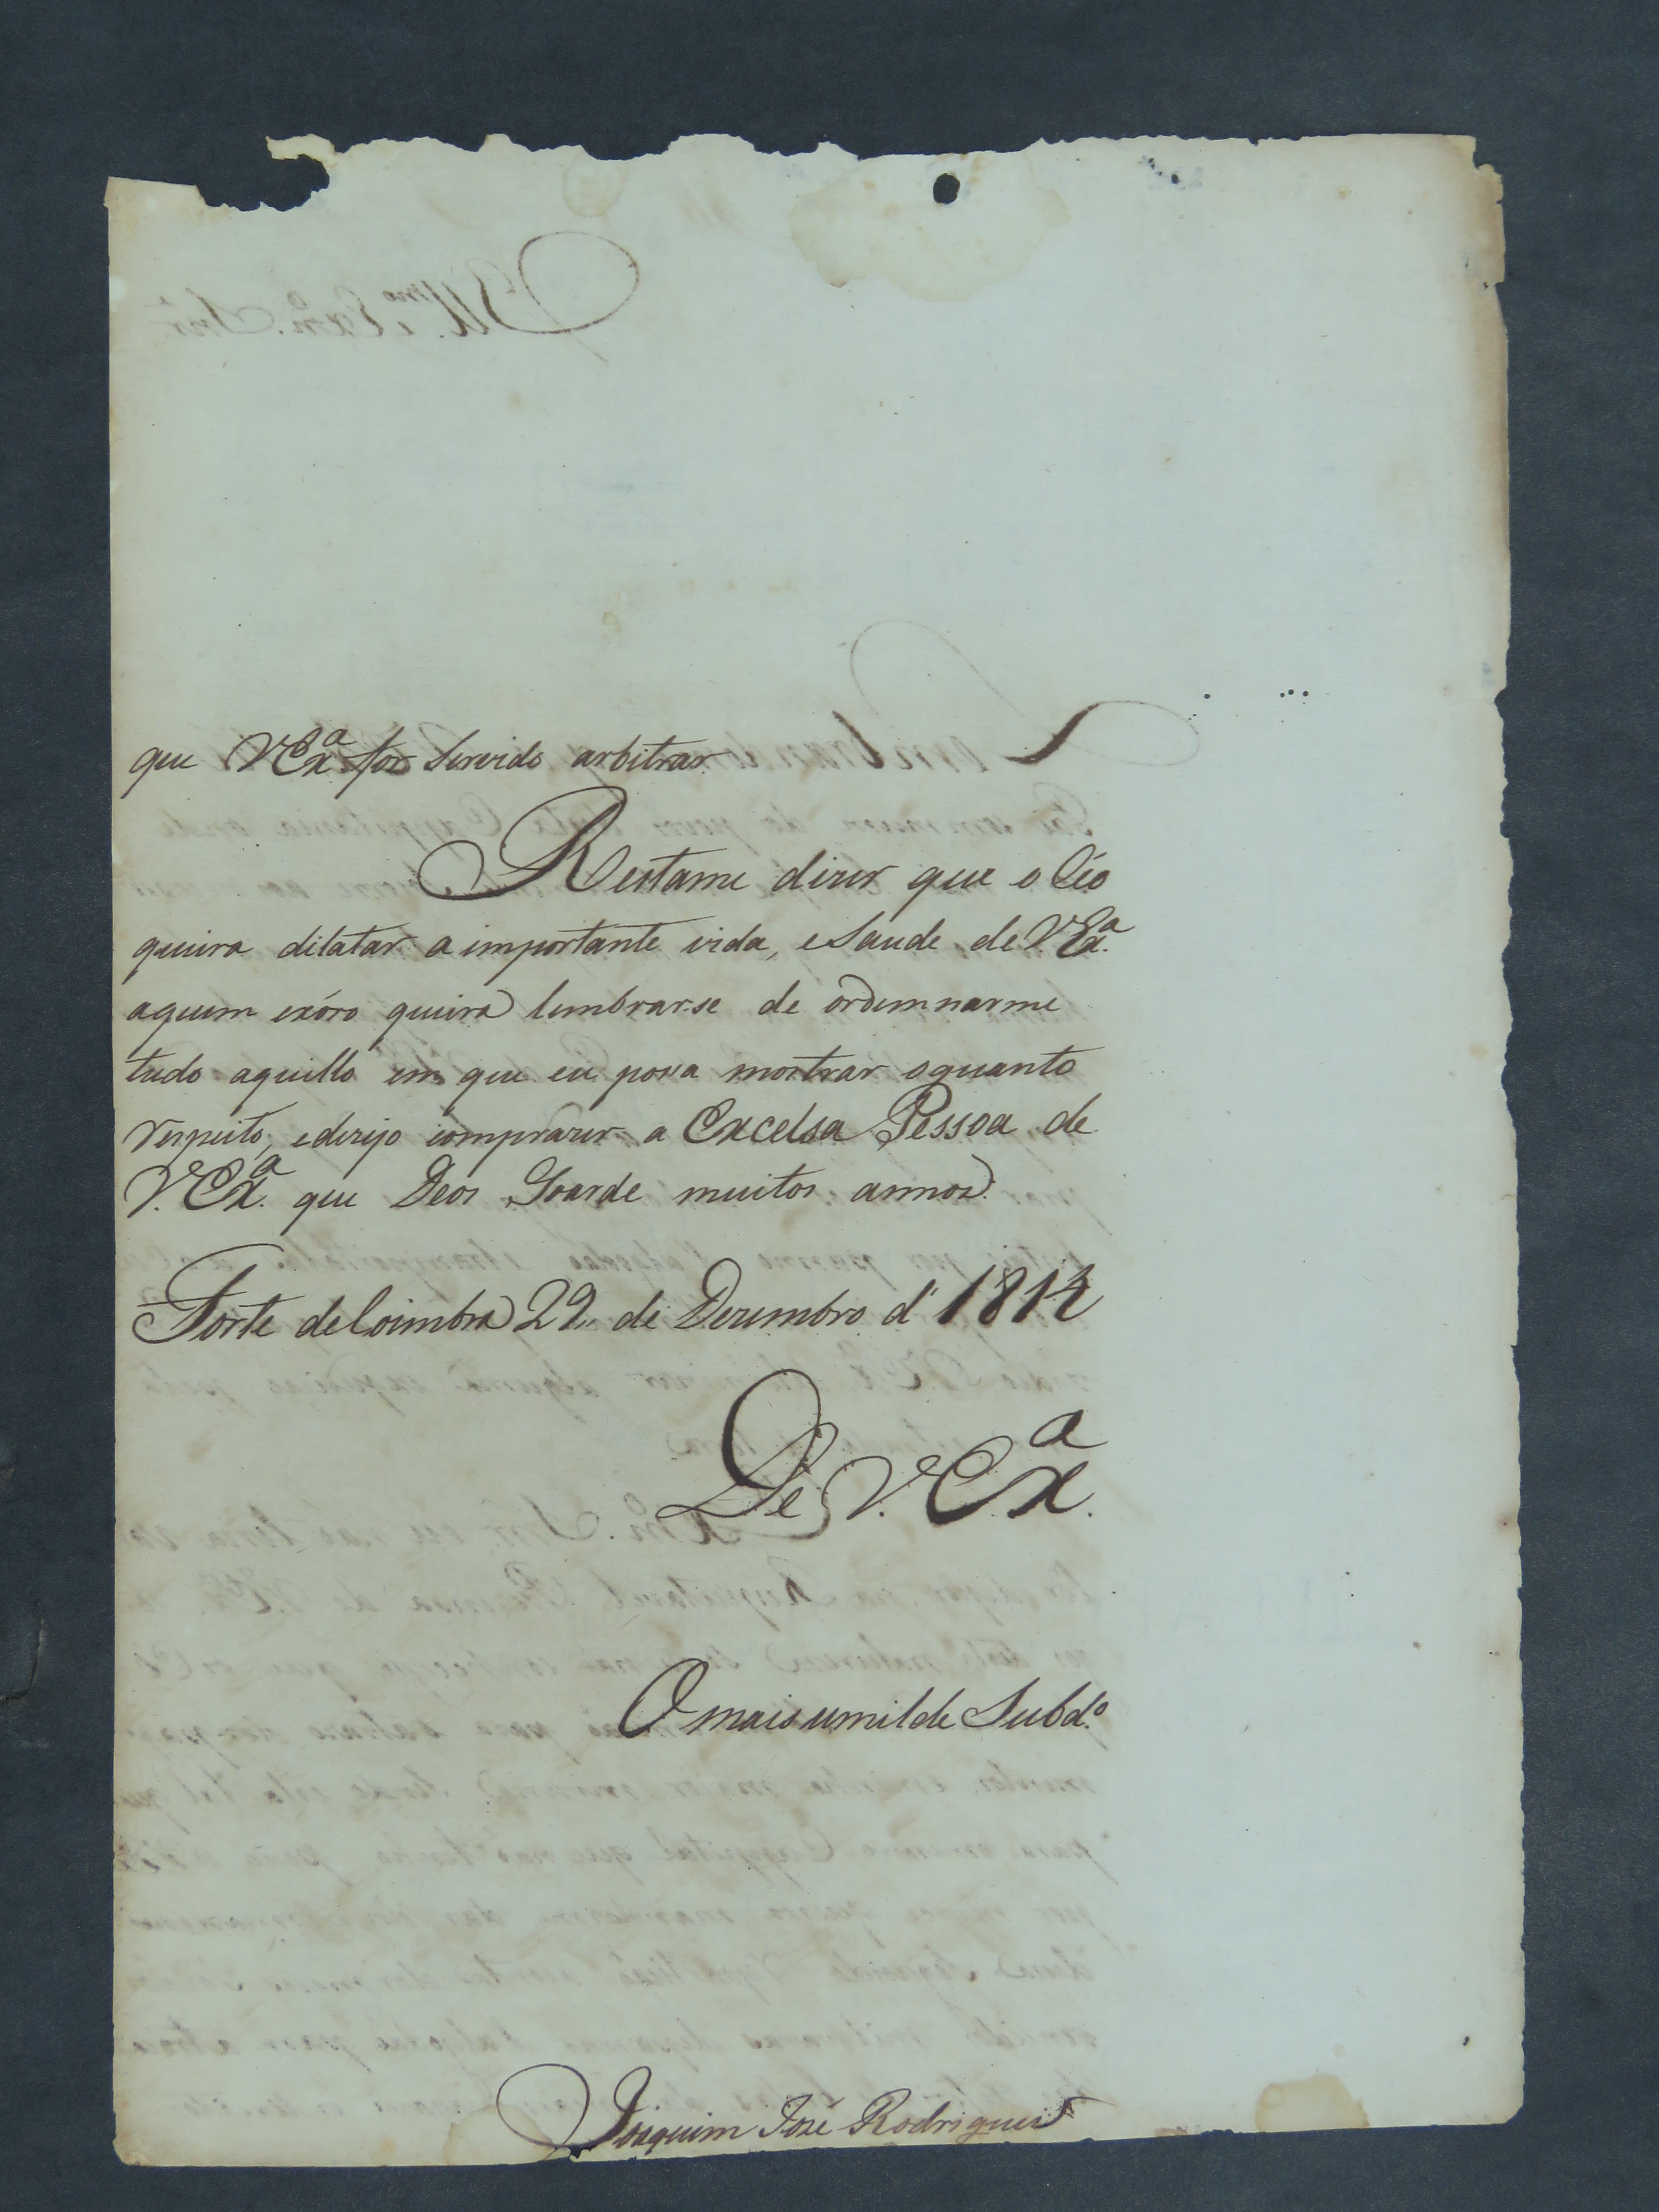 que V Exª for servido arbitrar.
Restame dizer que o Céo
queira dilatar a importante vida, e saude de V. Exª.
aquem exóro queira lembrarse de ordemnarme
tudo aquillo em que eu possa mostrar oquanto
respeito, edezejo comprazer a Excelsa Pessoa de
V. Exª. que Deos Goarde muitos annos.
Forte deCoimbra 29 de Dezembro d'
De V. Exª.
O mais umilde Subd.º
Joaquim José Rodrigues